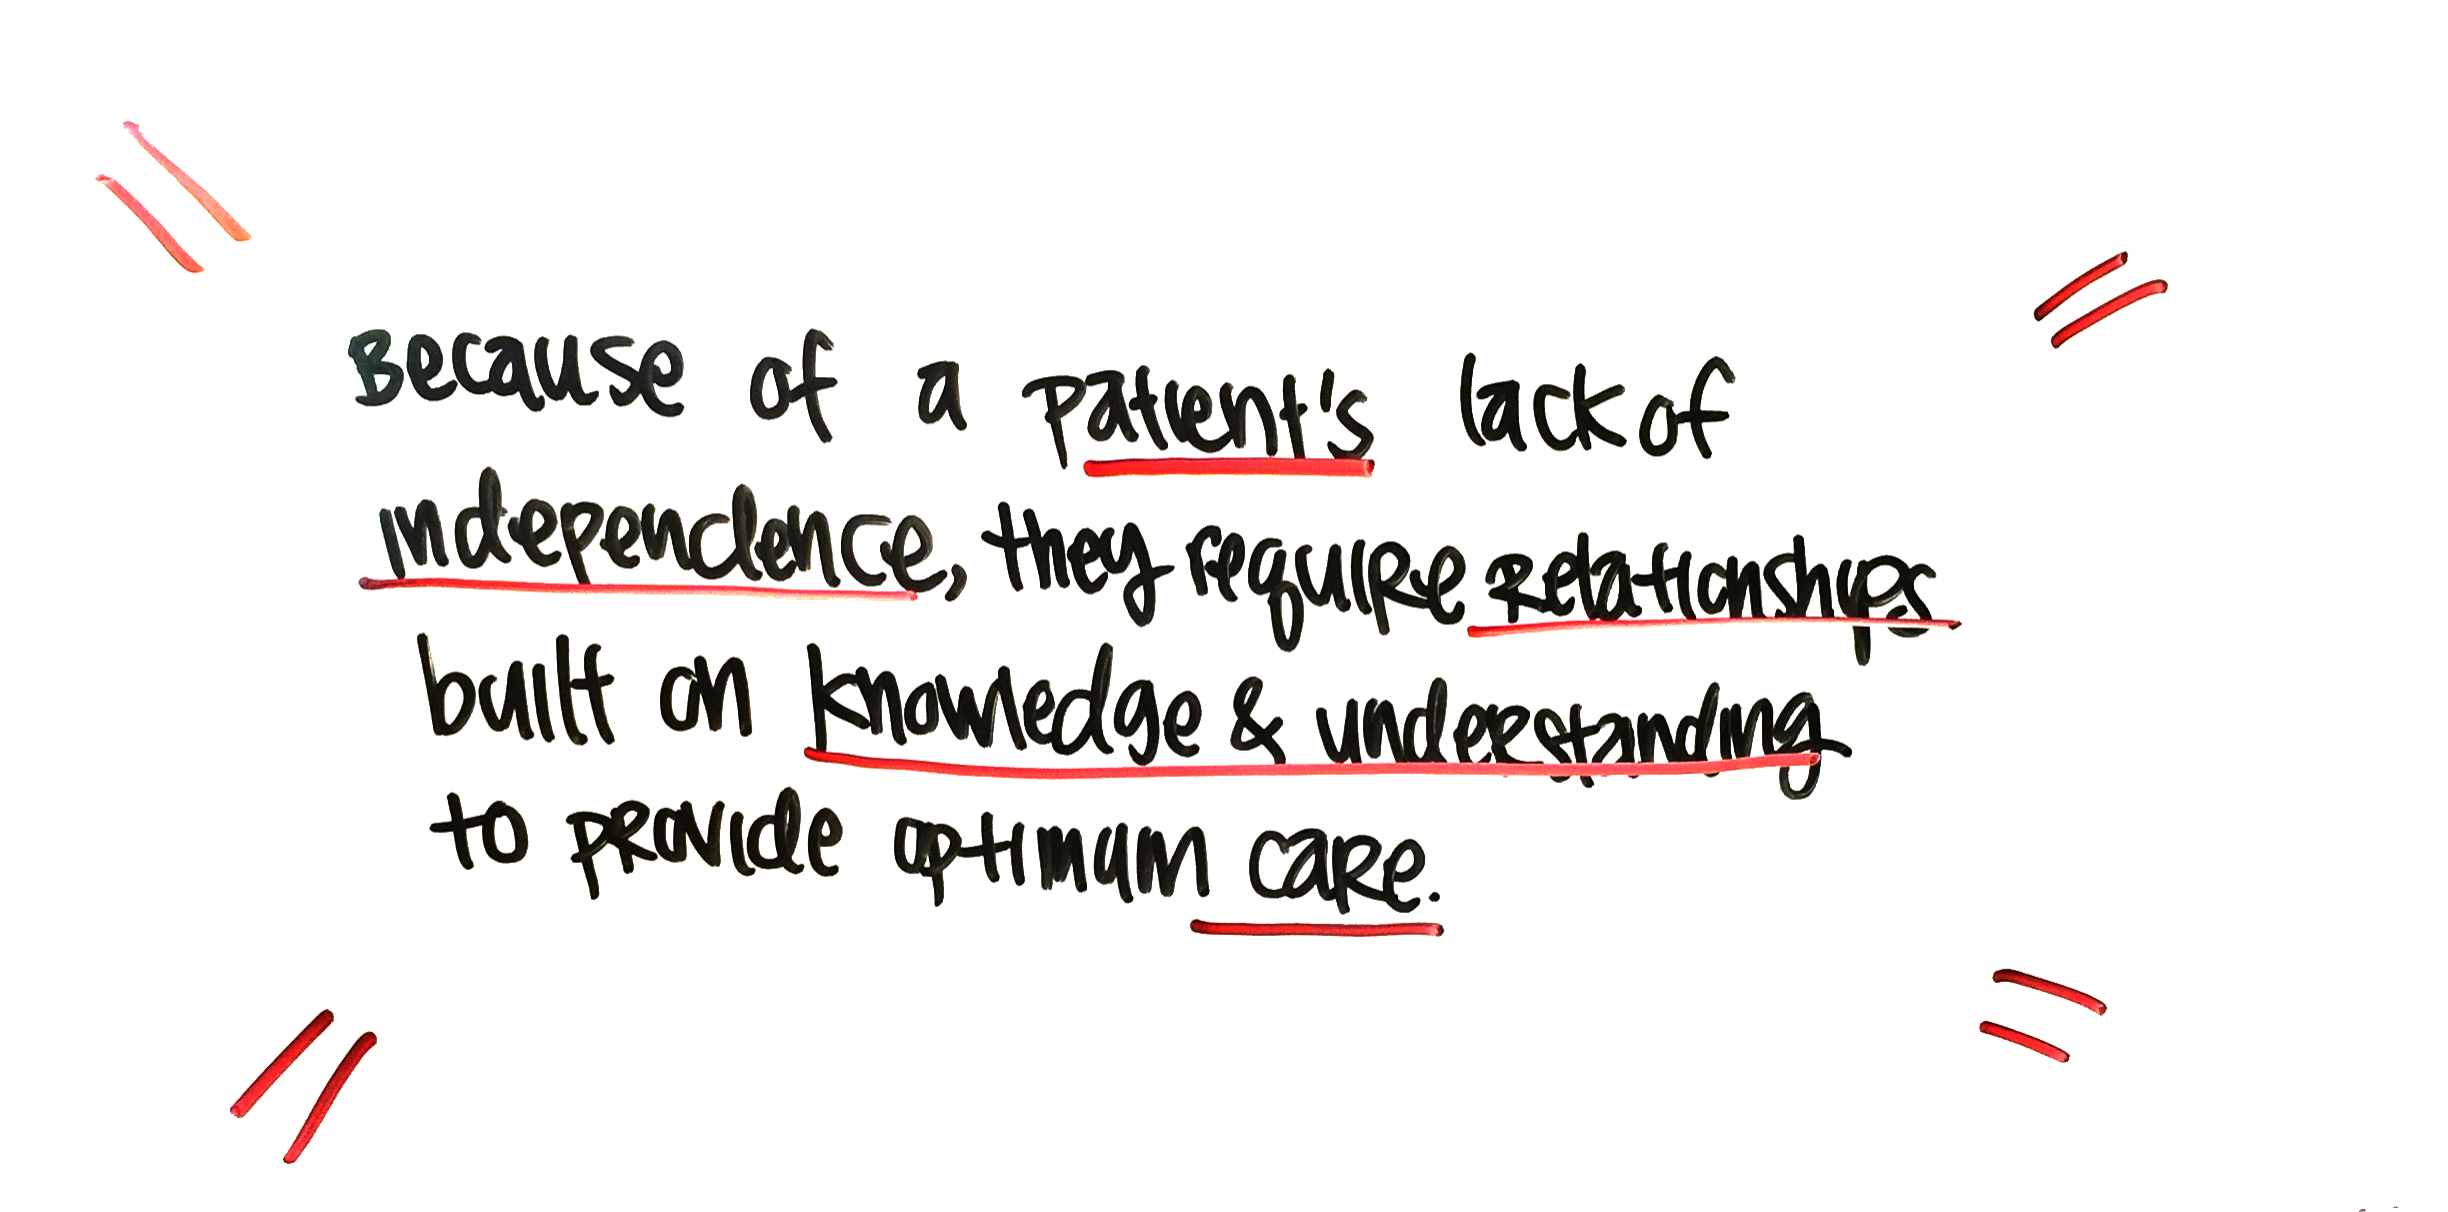 Because of a patient's lack of
independence, they require relationships
built on knowledge & understanding
to provide optimum care.